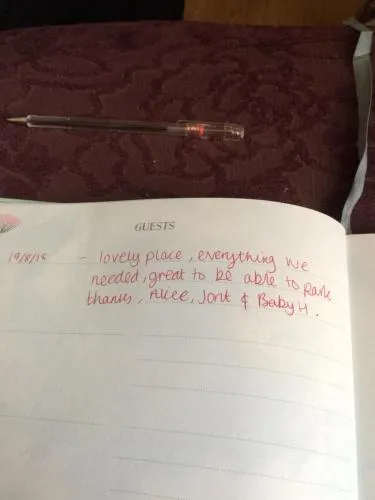 GUESTS
19/8/18 - lovely place, everything we
needed, great to be able to park
thanks, Alice, Jont & Baby H.